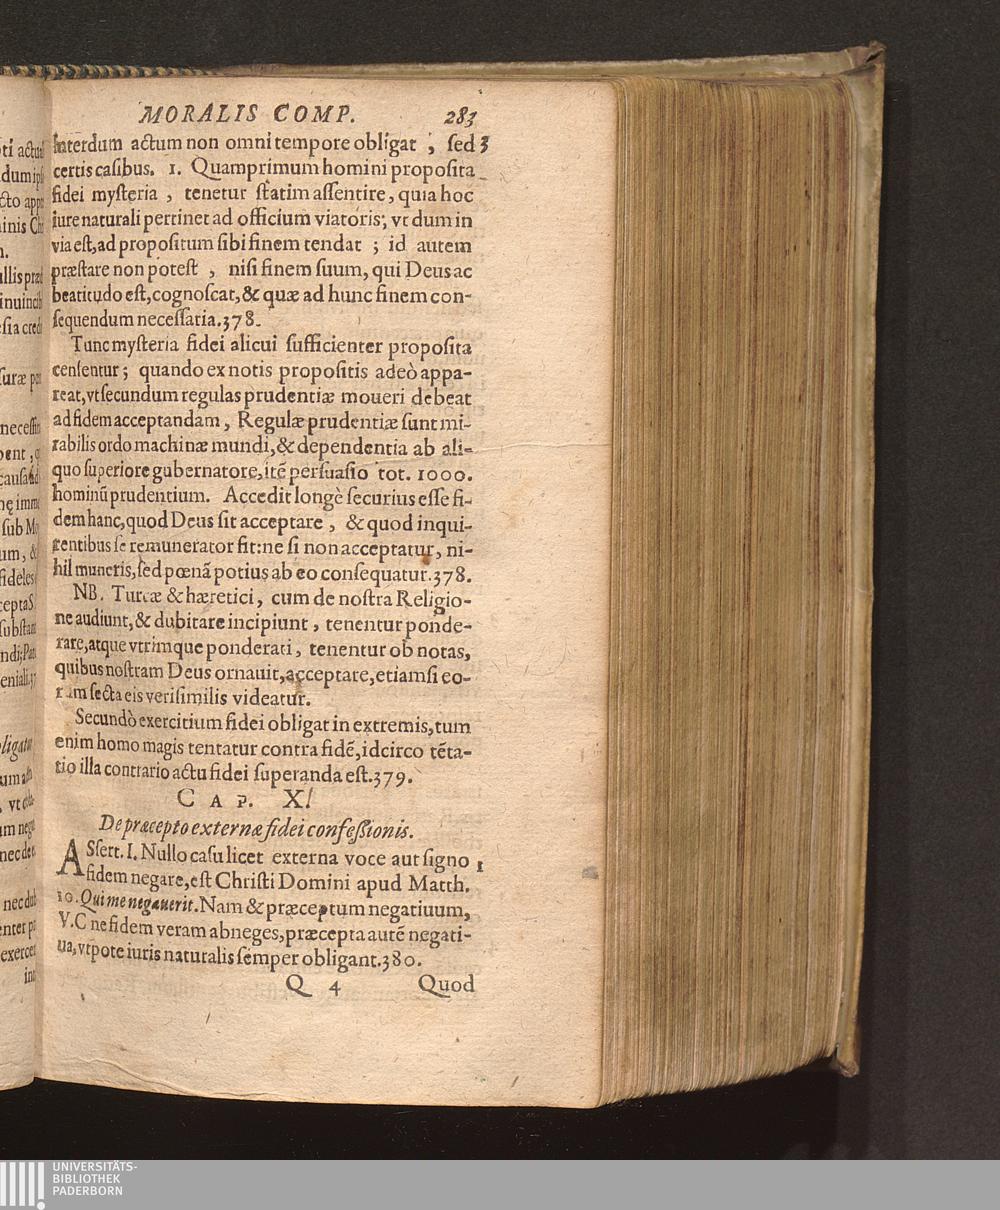 MORALIS COMP. 283
Interdum actum non omni tempore obligat ; ſed 3
certis caſibus. 1. Quamprimum homini propoſita
fidei myſteria , tenetur ſtatim aſſentire, quia hoc
iure naturali pertinet ad officium viatoris; vt dum in
via eſt, ad propoſitum ſibi finem tendat ; id autem
præſtare non poteſt , niſi finem ſuum, qui Deus ac
beatitudo eſt, cognoſcat, & quæ ad hunc finem con-
ſequendum neceſſaria. 378.
Tunc myſteria fidei alicui ſufficienter propoſita
cenſentur ; quando ex notis propoſitis adeò appa-
reat, vt ſecundum regulas prudentiæ moueri debeat
ad fidem acceptandam, Regulæ prudentiæ ſunt mi-
rabilis ordo machinæ mundi, & dependentia ab ali-
quo ſuperiore gubernatore, itē perſuaſio tot. 1000.
hominū prudentium. Accedit longè ſecurius eſſe fi-
dem hanc, quod Deus ſit acceptare , & quod inqui-
rentibus ſe remunerator fit: ne ſi non acceptatur, ni-
hil muneris, ſed pœnā potius ab eo conſequatur. 378.
NB. Turcæ & hæretici, cum de noſtra Religio-
ne audiunt, & dubitare incipiunt , tenentur ponde-
rare, atque vtrimque ponderati, tenentur ob notas,
quibus noſtram Deus ornauit, acceptare, etiamſi eo-
rum ſecta eis veriſimilis videatur.
Secundò exercitium fidei obligat in extremis, tum
enim homo magis tentatur contra fidē, idcirco tēta-
tio illa contrario actu fidei ſuperanda eſt. 379.
CAP. X.
De præcepto externæ fidei confeſſionis.
ASſert. I. Nullo caſu licet externa voce aut ſigno 1
fidem negare, eſt Chriſti Domini apud Matth.
10. Qui me negauerit. Nam & præceptum negatiuum,
V. C ne fidem veram abneges, præcepta autē negati-
ua, vtpote iuris naturalis ſemper obligant. 380.
Q 4 Quod
UNIVERSITÄTS-
BIBLIOTHEK
PADERBORN